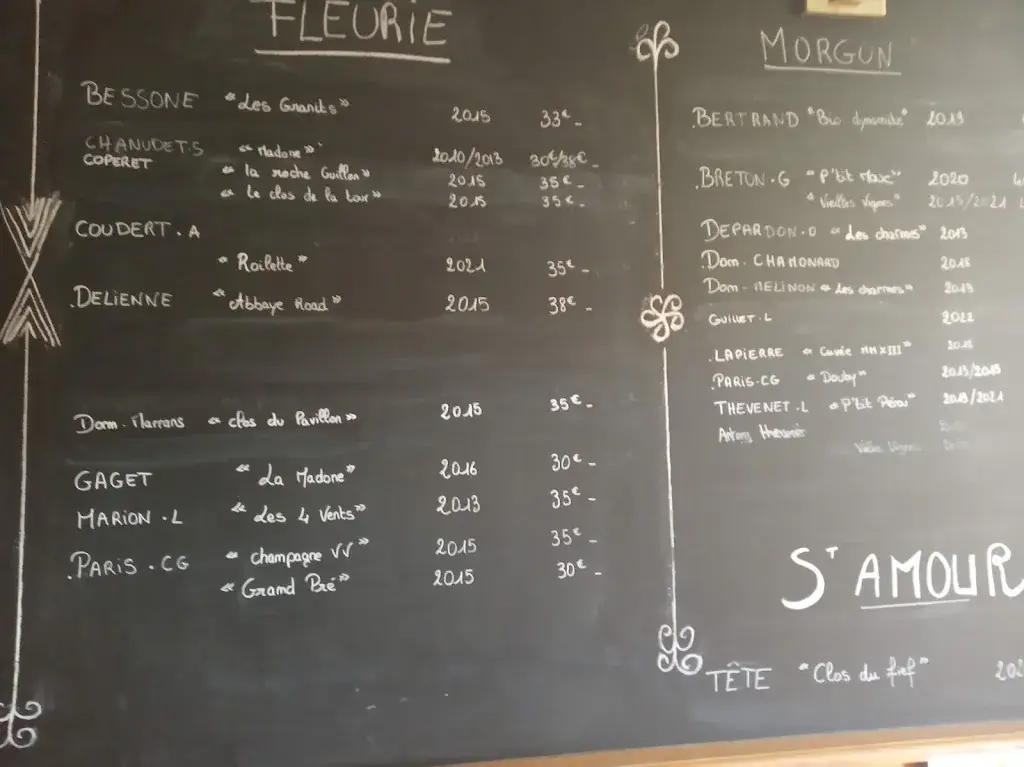 FLEURIE
BESSONE "Les Granits" 2015 33€-
CHANUDET.S "Madone" 2010/2013 30€/38€-
COPERET
"la roche Guillon" 2015 35€-
"le clos de la tour" 2015 35€-
COUDERT.A
"Roilette" 2021 35€-
.DELIENNE "Abbaye Road" 2015 38€-
Dom. Marrans "clos du Pavillon" 2015 35€-
GAGET "La Madone" 2016 30€-
MARION.L "Les 4 Vents" 2013 35€-
.PARIS.CG "champagne VV" 2015 35€-
"Grand Pré" 2015 30€-
MORGON
.BERTRAND "Bio dynamite" 2019
.BRETON.G "P'tit Max" 2020
"Vieilles Vignes" 2015/2021
DEPARDON.O "Les charmes" 2013
.Dom. CHAMONARD 2018
Dom. MELINON "Les charmes" 2013
GUILLET.L 2022
.LAPIERRE "Cuvée MMXIII"
.PARIS.CG "Douby" 2013/2015
THEVENET.L "P'tit Pérou" 2018/2021
Vieilles Vignes
ST AMOUR
TÊTE "Clos du fief" 202